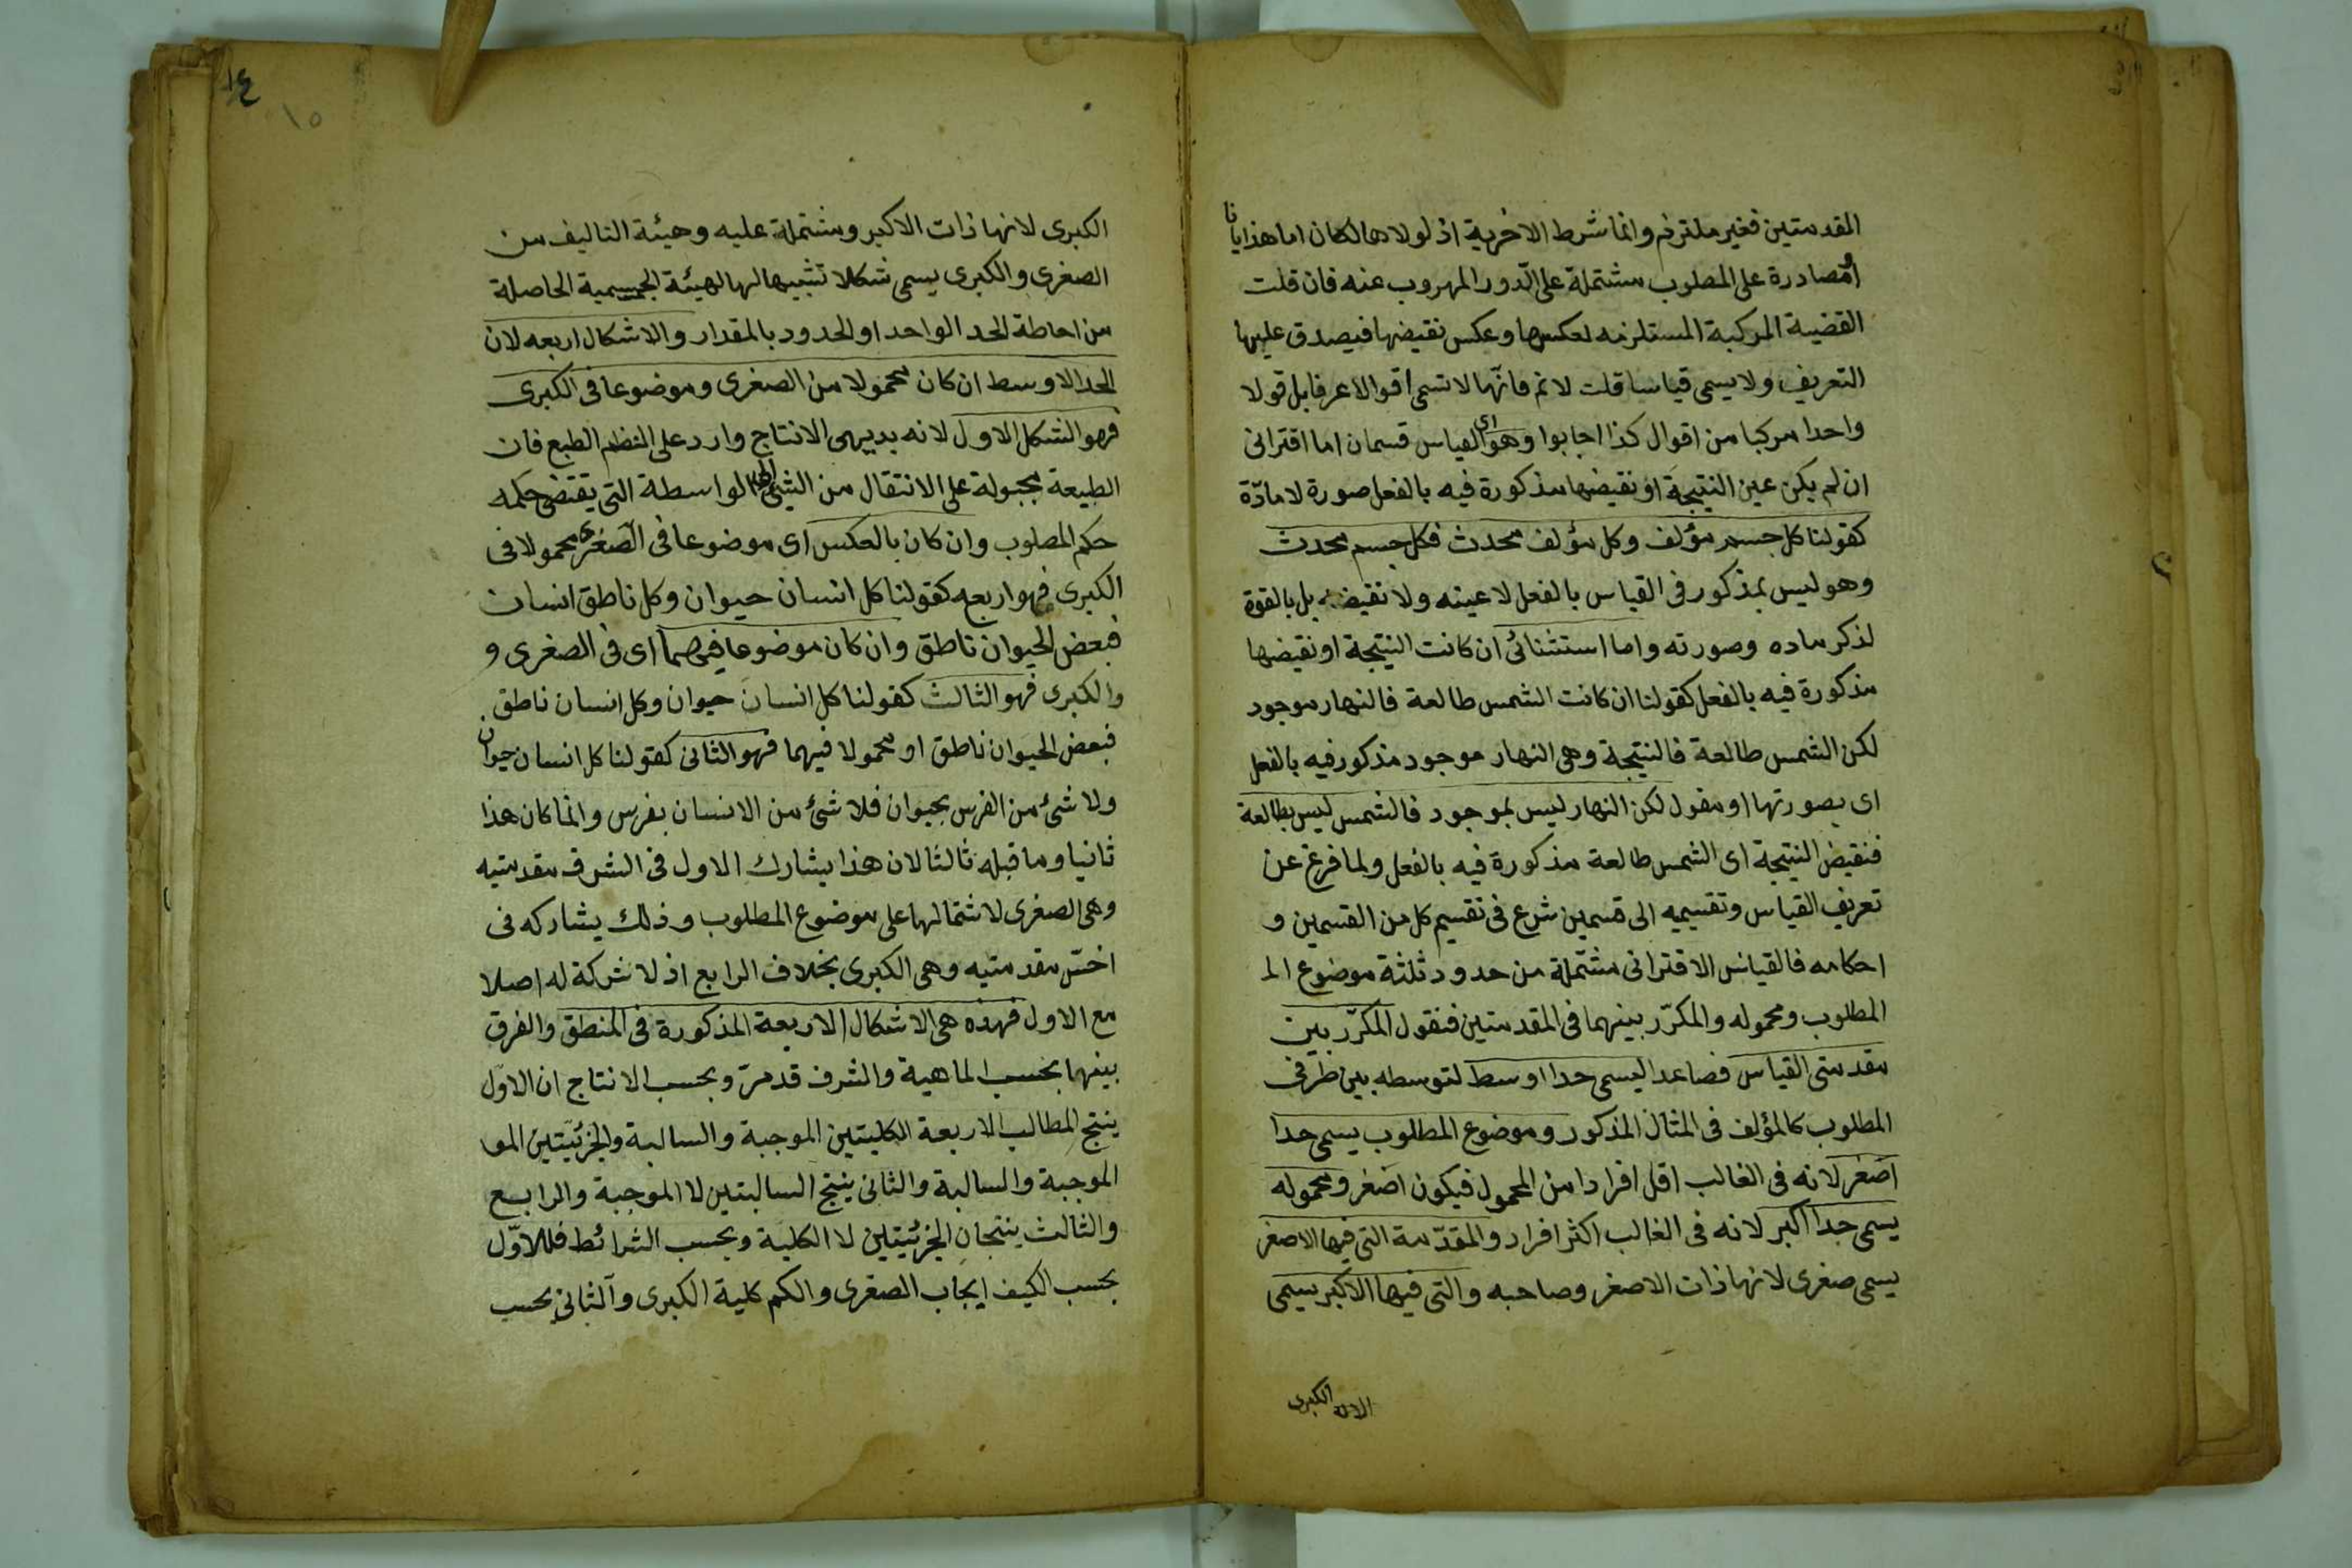 المقدمتين فغير ملتزم وانما شرط الاخرية اذ لولاها لكان اما هذيانا
او مصادرة على المطلوب مشتملة على الدور المهروب عنه فان قلت
القضية المركبة المستلزمه لعكسها وعكس نقيضها فيصدق عليها
التعريف ولا يسمى قياسا قلت لا نم فانّها لا تسمى اقوالا عرفا بل قولا
واحدا مركبا من اقوال كذا اجابوا وهو اى القياس قسمان اما اقترانى
ان لم يكن عين النتيجة او نقيضها مذكورة فيه بالفعل صورة لا مادّة
كقولنا كل جسم مؤلف وكل مؤلف محدث فكل جسم محدث
وهو ليس بمذكور فى القياس بالفعل لا عينه ولا نقيضه بل بالقوة
لذكر ماده وصورته واما استثنائى ان كانت النتيجة او نقيضها
مذكورة فيه بالفعل كقولنا ان كانت الشمس طالعة فالنهار موجود
لكن الشمس طالعة فالنتيجة وهى النهار موجود مذكور فيه بالفعل
اى بصورتها او مقول لكن النهار ليس بموجود فالشمس ليس بطالعة
فنقيض النتيجة اى الشمس طالعة مذكورة فيه بالفعل ولما فرغ عن
تعريف القياس وتقسيمه الى قسمين شرع فى تقسيم كل من القسمين و
احكامه فالقياس الاقترانى مشتملة من حدود ثلثة موضوع الم
المطلوب ومحموله والمكرّر بينهما فى المقدمتين فنقول المكرّر بين
مقدمتى القياس فصاعدا يسمى حدا اوسط لتوسطه بين طرفى
المطلوب كالمؤلف فى المثال المذكور وموضوع المطلوب يسمى حدا
اصغر لانه فى الغالب اقل افرادا من المحمول فيكون اصغر ومحموله
يسمى حدا اكبر لانه فى الغالب اكثر افراد والمقدّمة التى فيها الاصغر
يسمى صغرى لانها ذات الاصغر وصاحبه والتى فيها الاكبر يسمى
الكبرى
الكبرى لانها ذات الاكبر ومشتملة عليه وهيئة التاليف من
الصغرى والكبرى يسمى شكلا تشبيها لها لهيئة الجسمية الحاصلة
من احاطة الحد الواحد او الحدود بالمقدار والاشكال اربعه لان
الحد الاوسط ان كان محمولا من الصغرى وموضوعا فى الكبرى
فهو الشكل الاول لانه بديهى الانتاج وارد على النظم الطبع فان
الطبيعة مجبولة على الانتقال من الشئ الى الواسطة التى يقتضى حكمه
حكم المطلوب وان كان بالعكس اى موضوعا فى الصغرى محمولا فى
الكبرى فهو اربع كقولنا كل انسان حيوان وكل ناطق انسان
فبعض الحيوان ناطق وان كان موضوعا فيهما اى فى الصغرى و
والكبرى فهو الثالث كقولنا كل انسان حيوان وكل انسان ناطق
فبعض الحيوان ناطق او محمولا فيهما فهو الثانى كقولنا كل انسان حيوان
ولا شئ من الفرس بحيوان فلا شئ من الانسان بفرس وانما كان هذا
ثانيا وما قبله ثالثا لان هذا يشارك الاول فى الشرف مقدمتيه
وهى الصغرى لاشتمالها على موضوع المطلوب وذلك يشاركه فى
اخسّ مقدمتيه وهى الكبرى بخلاف الرابع اذ لا شركة له اصلا
مع الاول فهذه هى الاشكال الاربعة المذكورة فى المنطق والفرق
بينها بحسب الماهية والشرف قد مرّ وبحسب الانتاج ان الاوّل
ينتج المطالب الاربعة الكليتين الموجبة والسالبة والجزئيّتين المو
الموجبة والسالبة والثانى ينتج السالبتين لا الموجبة والرابع
والثالث ينتجان الجزئيتين لا الكلية وبحسب الشرائط فللاوّل
بحسب الكيف ايجاب الصغرى والكم كلية الكبرى والثانى بحسب
١٤
١٥